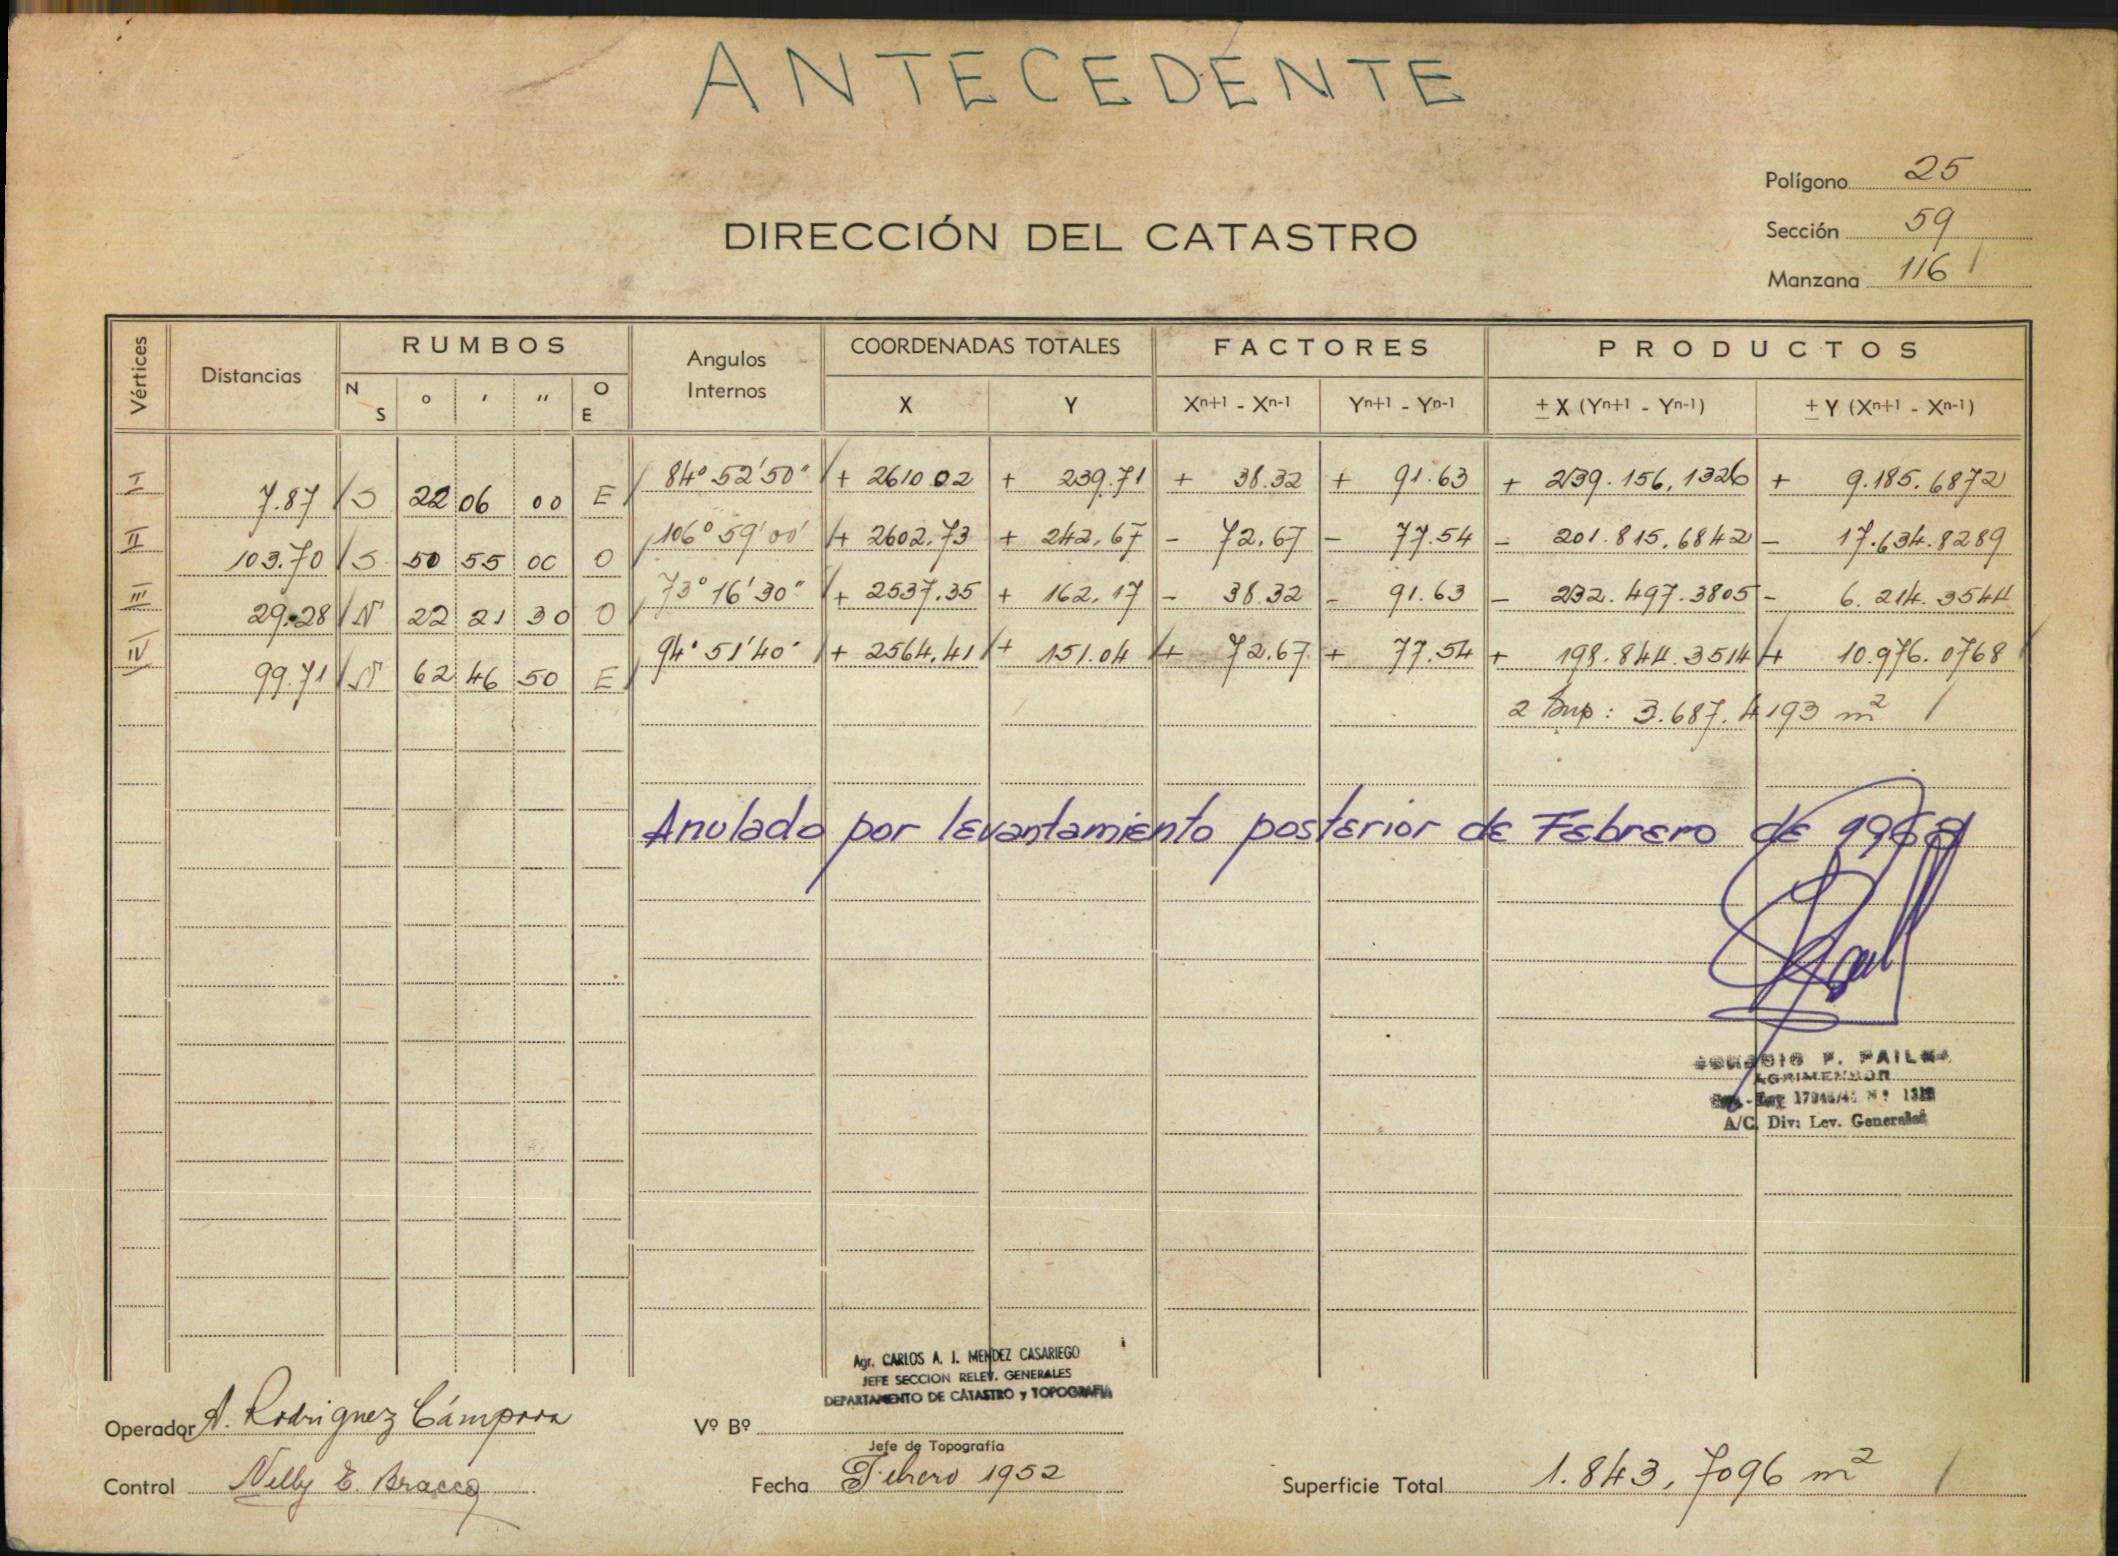 ANTECEDENTE
Polígono 25
Sección 59
Manzana 116
DIRECCIÓN DEL CATASTRO
Vértices Distancias RUMBOS Angulos Internos COORDENADAS TOTALES FACTORES PRODUCTOS
N S ° ' " O E X Y Xn+1 - Xn-1 Yn+1 - Yn-1 ± X (Yn+1 - Yn-1) ± Y (Xn+1 - Xn-1)
I 7.87 S 22 06 00 E 84° 52' 50" + 2610.02 + 239.71 + 38.32 + 91.63 + 239.156,1326 + 9.185.6872
II 103.70 S 50 55 00 O 106° 59' 00' + 2602.73 + 242,67 - 72.67 - 77.54 - 201.815,6842 - 17.634.8289
III 29.28 N 22 21 30 O 73° 16' 30" + 2537.35 + 162,17 - 38.32 - 91.63 - 232.497.3805 - 6.214.3544
IV 99.71 N 62 46 50 E 94° 51' 40" + 2564,41 + 151.04 + 72.67 + 77.54 + 198.844.3514 + 10.976.0768
2 Sup: 3.687.4193 m²
Anulado por levantamiento posterior de Febrero de 1968
AGRIMENSOR
A/C. Div: Lev. Generales
Agr. CARLOS A. J. MENDEZ CASARIEGO
JEFE SECCION RELEV. GENERALES
DEPARTAMENTO DE CATASTRO y TOPOGRAFIA
Operador A. Rodriguez Cámpora
Vº Bº
Jefe de Topografía
Control Nelly E. Bracco
Fecha Febrero 1952
Superficie Total 1.843,7096 m²